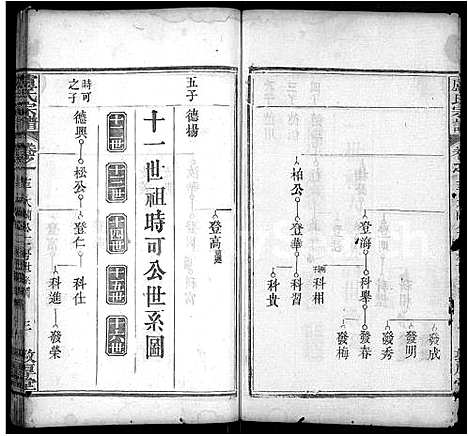 盧氏宗譜
柏公
登海
登華
科舉
科相
科習
科貴
發成
發明
發秀
發春
發梅
登高
五子
德楊
十一世祖時可公世系圖
十二世
十三世
十四世
十五世
十六世
時可之子
德興
松公
登富
登仁
科仕
科進
發榮
盧氏宗譜
三
敦厚堂